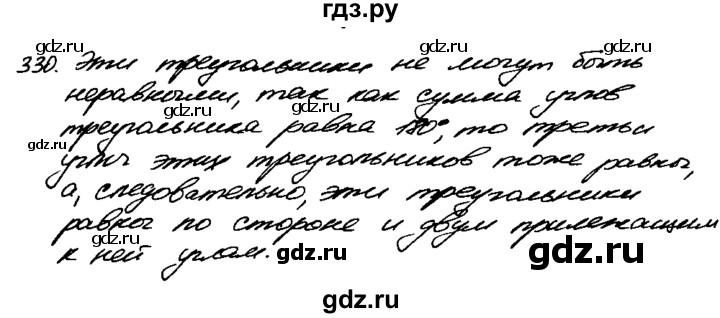 гдз.ру
330. Эти треугольники не могут быть
неравными, так как сумма углов
треугольника равна 180°, то третьи
углы этих треугольников тоже равны,
а, следовательно, эти треугольники
равны по стороне и двум прилежащим
к ней углам.
gdz.ru
gdz.ru
gdz.ru
gdz.ru
gdz.ru
gdz.ru
gdz.ru
gdz.ru
gdz.ru
gdz.ru